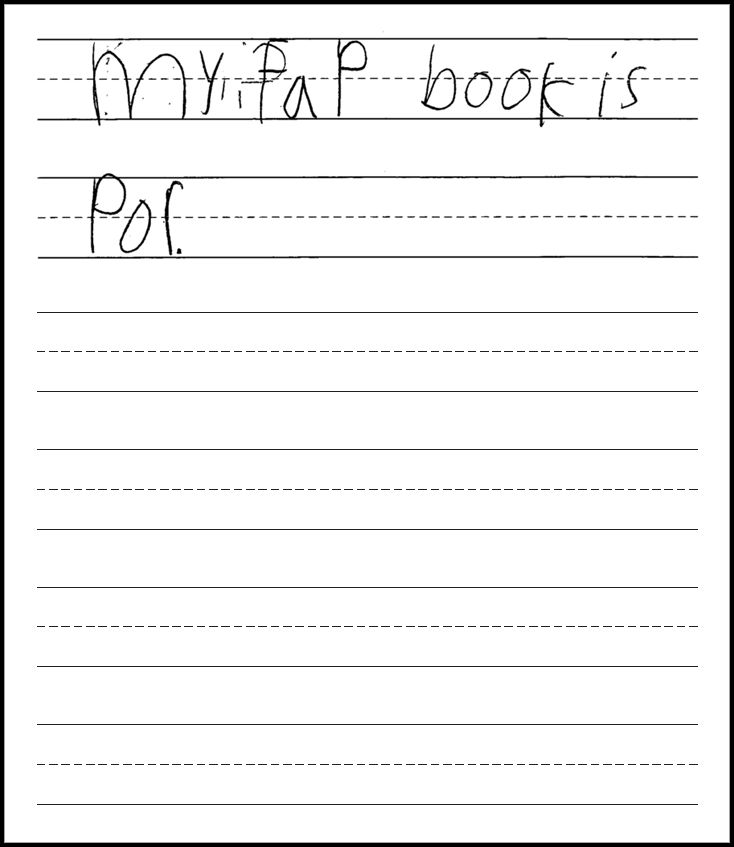 My PaP book is
Por.